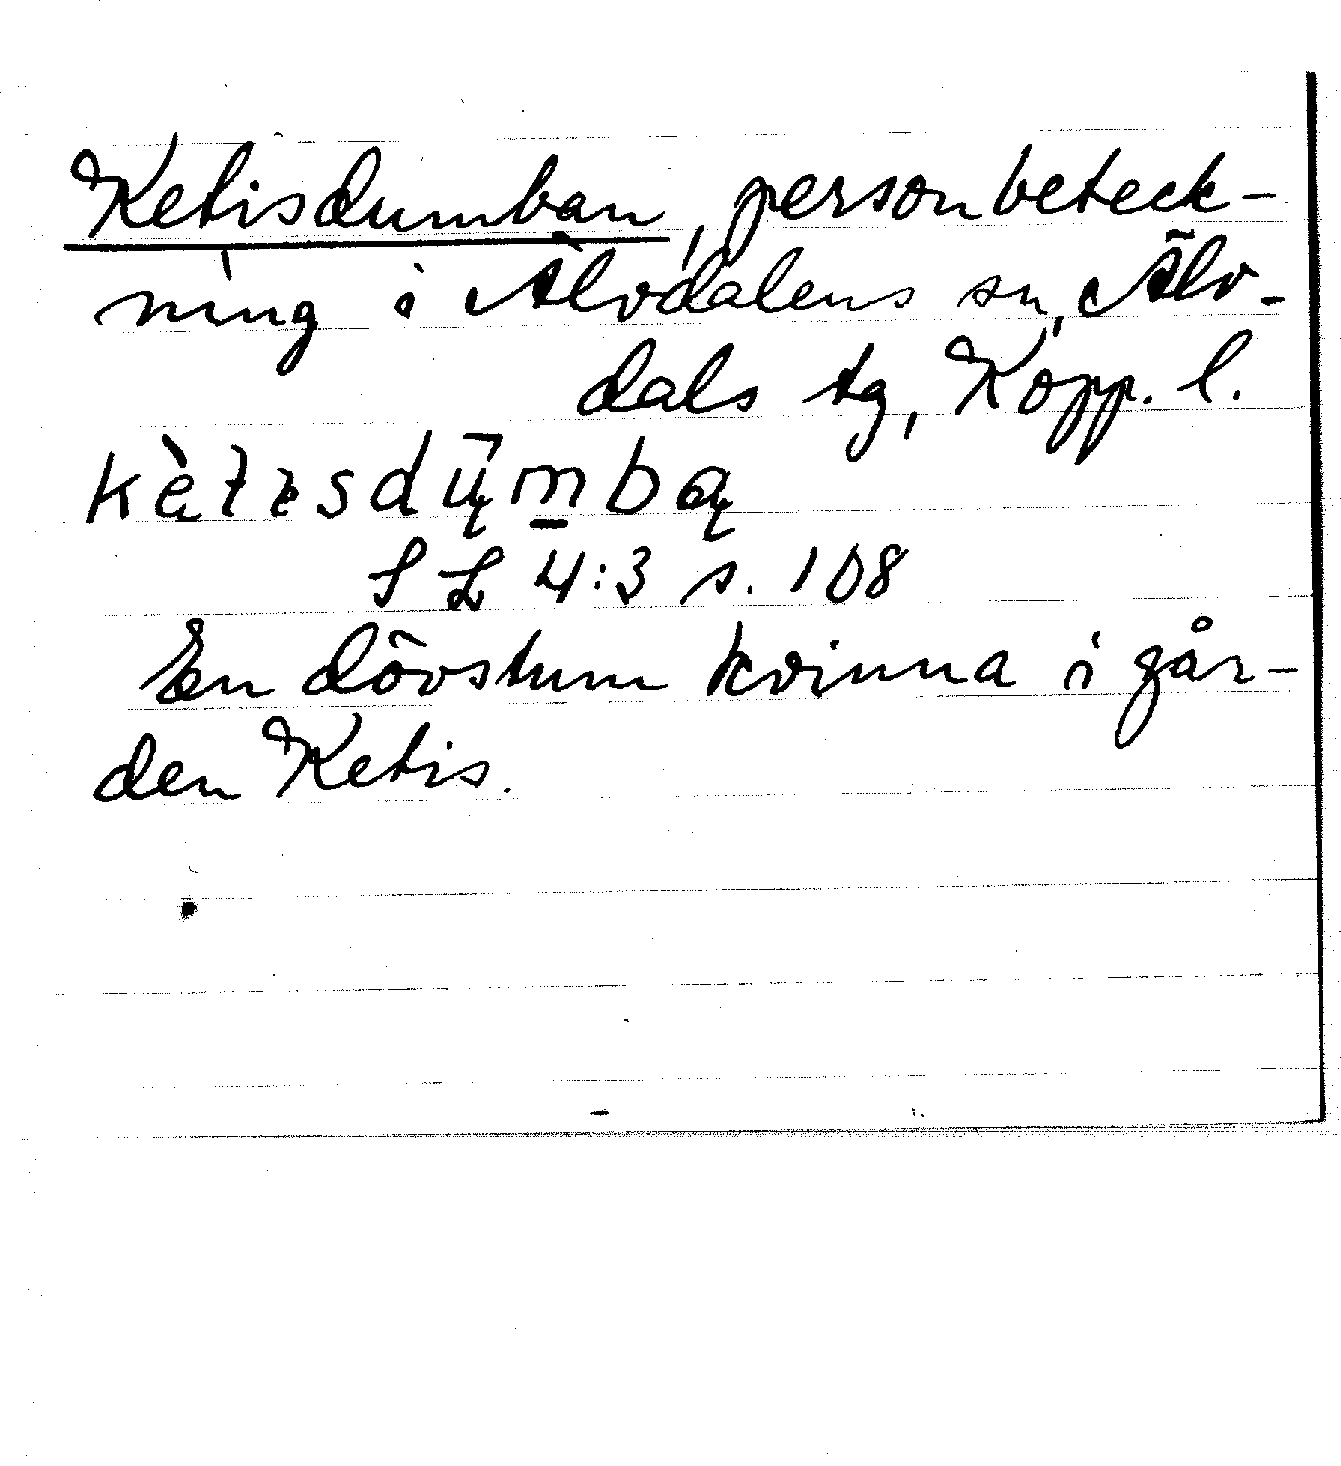 Ketisdumban, personbeteck-
ning i Älvdalens sn, Älv-
dals tg, Kopp. l.
SL 4:3 s. 108
En dövstum kvinna i går-
den Ketis.